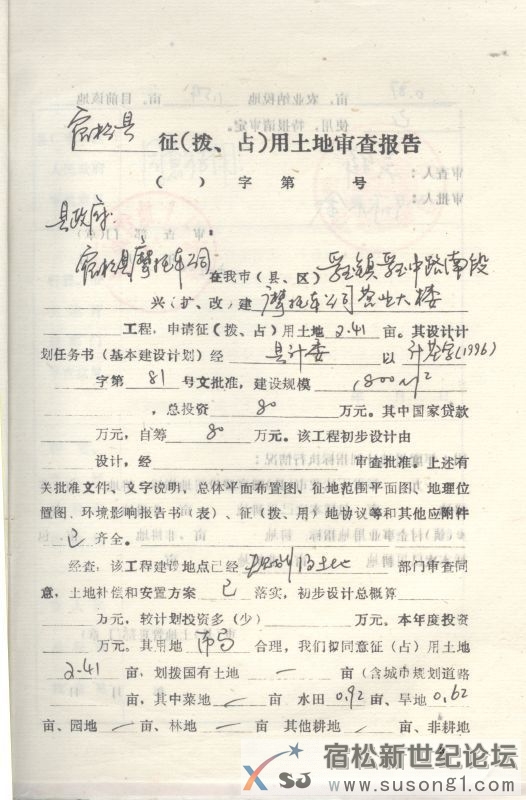 宿松县 征(拨、占)用土地审查报告
( ) 字 第 号
县政府:
宿松县摩托车公司 在我市(县、区) 孚玉镇孚玉中路南段
兴(扩、改)建 摩托车公司营业大楼
工程,申请征(拨、占)用土地 2.41 亩。其设计计
划任务书(基本建设计划)经 县计委 以 计基字(1996)
字第 81 号文批准,建设规模 1800m²
,总投资 80 万元。其中国家贷款
万元,自筹 80 万元。该工程初步设计由
设计,经 审查批准。上述有
关批准文件、文字说明、总体平面布置图、征地范围平面图、地理位
置图、环境影响报告书(表)、征(拨、用)地协议等和其他应附件
已 齐全。
经查:该工程建设地点已经 部门审查同
意,土地补偿和安置方案 已 落实,初步设计总概算
万元,较计划投资多(少) 万元。本年度投资
万元。其用地 布局 合理,我们拟同意征(占)用土地
2.41 亩,划拨国有土地 — 亩(含城市规划道路
亩,其中菜地 — 水田 0.92 亩、旱地 0.62
亩、园地 — 亩、林地 — 亩 其他耕地 — 亩、非耕地
宿松新世纪论坛
SJ www.susong1.com